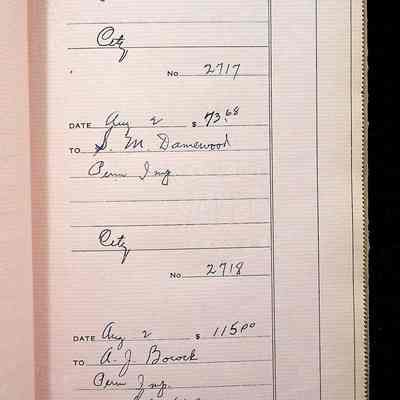 City
No 2717
DATE Aug 2 $ 73.68
TO S. M. Damewood
Perm Imp
City
No 2718
DATE Aug 2 $ 115.00
TO A. J. Bocock
Perm Imp.